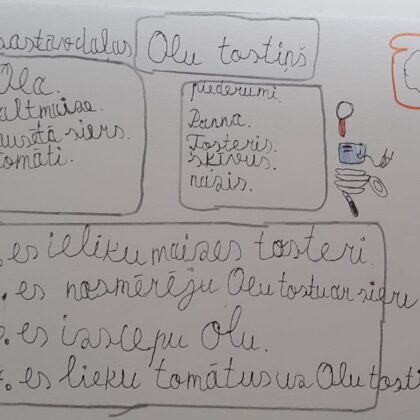 sastāvdaļas
Olu tostiņš
Ola.
altmaize.
ausētā siers.
tomāti.
piederumi.
Panna.
Tosteris.
skīvus.
nazis.
es ieliku maizes tosteri.
. es nosmērēju Olu tostu ar sieru
. es izscepu Olu.
. es lieku tomātus uz Olu tosti